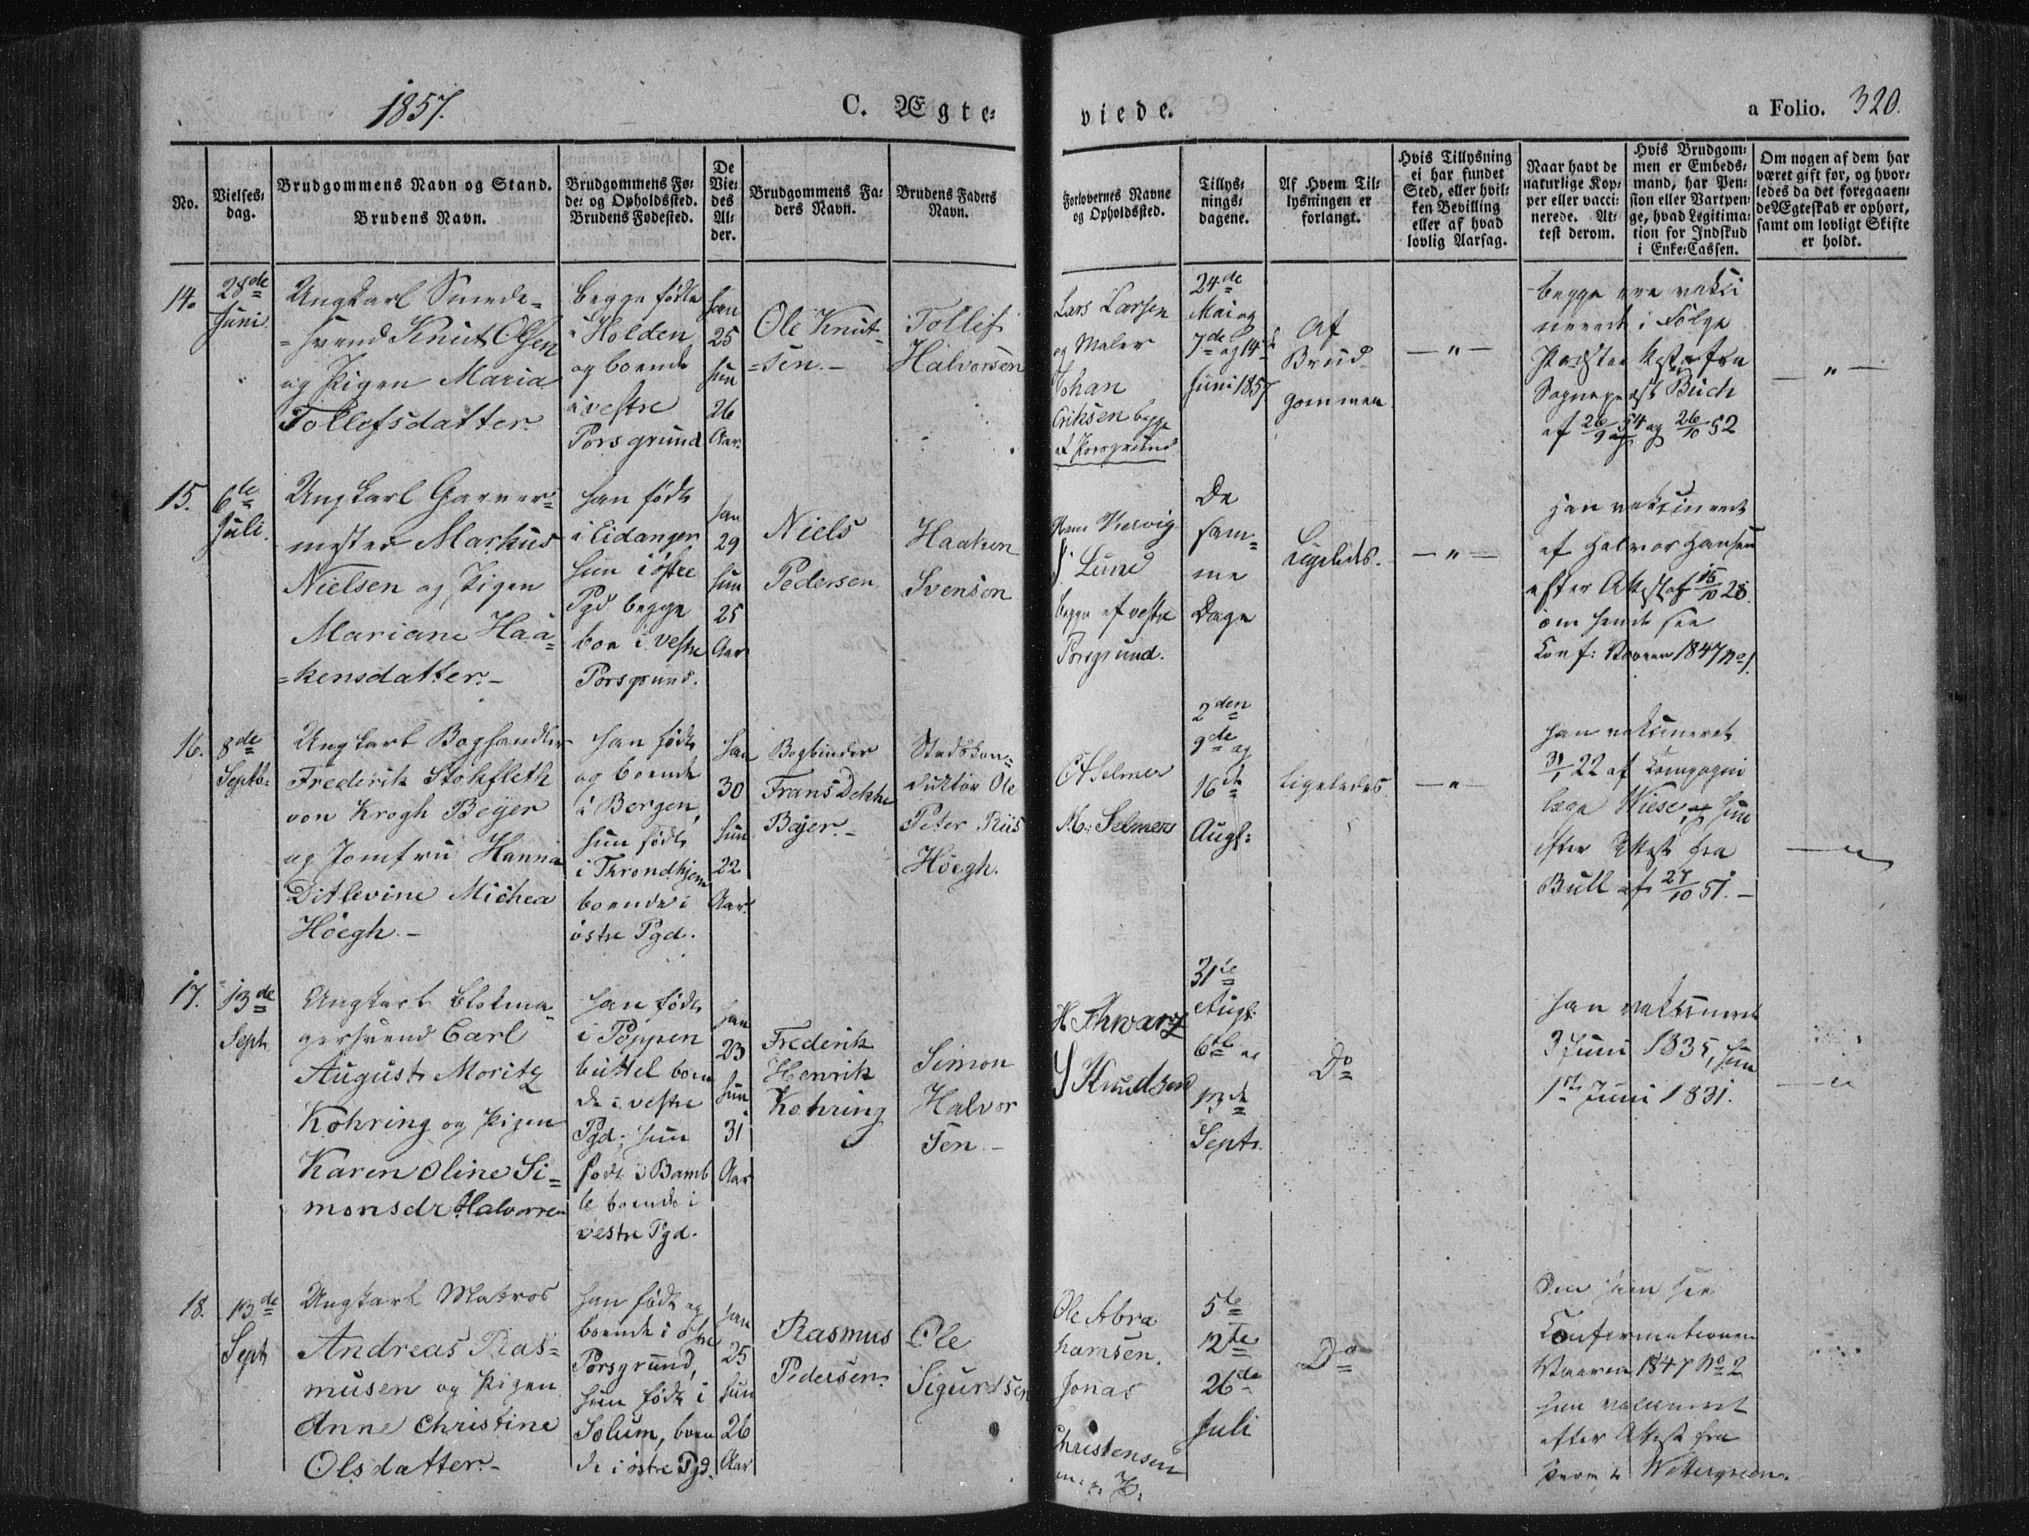 1857.
C. Ægte-
viede.
a Folio. 320.
No.
Vielses-
dag.
Brudgommens Navn og Stand.
Brudens Navn.
Brudgommens Fø-
de- og Opholdssted.
Brudens Fødested.
De
Vie-
des
Al-
der.
Brudgommens Fa-
ders Navn.
Brudens Faders
Navn.
Forlovernes Navne
og Opholdssted.
Tillys-
nings-
dagene.
Af Hvem Til-
lysningen er
forlangt.
Hvis Tillysning
ei har fundet
Sted, eller hvil-
ken Bevilling
eller af hvad
lovlig Aarsag.
Naar havt de
naturlige Kop-
per eller vacci-
nerede. At-
test derom.
Hvis Brudgom-
men er Embeds-
mand, har Pen-
sion eller Vartpen-
ge, hvad Legitima-
tion for Indskud
i Enke-Cassen.
Om nogen af dem har
været gift før, og hvor-
ledes da det foregaaen-
de Ægteskab er ophørt,
samt om lovligt Skifte
er holdt.
14.
28de
Juni
Ungkarl Smede-
=svend Knut Olsen
og Pigen Maria
Tollofsdatter.
begge fødte
i Holden
og boende
i vestre
Porsgrund
han
25
hun
26
Aar.
Ole Knut-
=sen.-
Tollif
Halvorsen
Lars Larsen
og Maler
Johan
Eriksen begge
af Porsgrund
24de
Mai og
7de og 14de
Juni 1857
Af
Brud-
gommen
- " -
begge ere vakci
nerede i Følge
Attest fra
Sognepræst Buch
af 26/9 54 og 26/10 52
- " -
15.
6te
Juli.
Ungkarl Garver-
mester Markus
Nielsen og Pigen
Mariane Haa-
=kensdatter.-
han født
i Eidanger
hun i østre
Pgd begge
boe i vestre
Porsgrund.
han
29
hun
25
Aar
Niels
Pedersen
Haaken
Svensen
Lund
begge af vestre
Porsgrund.
De
sam-
me
Dage
Ligeledes.
- " -
han vakcineret
af Halvor Hansen
efter Attest af 15/10 28.
om hende see
Conf: Vaaren 1847 No 1.
16.
8de
Septbr.
Ungkarl Boghandler
Frederik Stohfleth
von Krogh Beyer
og Jomfru Hanna
Ditlevine Michea
Höegh.-
han født
og boende
i Bergen,
hun født
i Throndhjem
boende i
østre Pgd.
han
30
hun
22
Aar.
Bogbinder
Frans Dekke
Bejer.-
Stadskon-
duktør Ole
Peter Riis
Höegh.
Selmer
M. Selmer
2den
9de og
16de
Augs:
Ligeledes
- " -
han vakcineret
31/1 22 af Compagni
læge Wiese, og hun
efter Attest fra
Bull af 27/10 51.-
- " -
17.
13de
Sept.
Ungkarl Blokma-
gersvend Carl
August Moritz
Kohring og Pigen
Karen Oline Si-
monsdr Halvorsen
han født
i Poppen
büttel boen
de i vestre
Pgd; hun
født i Bamb
le boende i
vestre Pgd.
han
23
hun
31
Aar
Frederik
Henrik
Kohring
Simon
Halvor
sen.-
H Schwarz
S Knudsen
31te
Augs:
6te og
13de
Septr.
Do
han vakcineret
3 Juni 1835, hun
1ste Juni 1831.
- " -
18.
13de
Sept
Ungkarl Matros
Andreas Ras-
musen og Pigen
Anne Christine
Olsdatter.-
han født og
boende i østre
Porsgrund,
hun født i
Solum, boen
de i østre Pgd.
han
25
hun
26
Aar
Rasmus
Pedersen.
Ole
Sigurdsen
Ole Abra
hamsen.
Jonas
Christensen
5te
12te
26de
Juli
Do
Om ham see
Confirmationen
Vaaren 1847 No 2
hun vakcineret
efter Attest fra
Wettergreen.